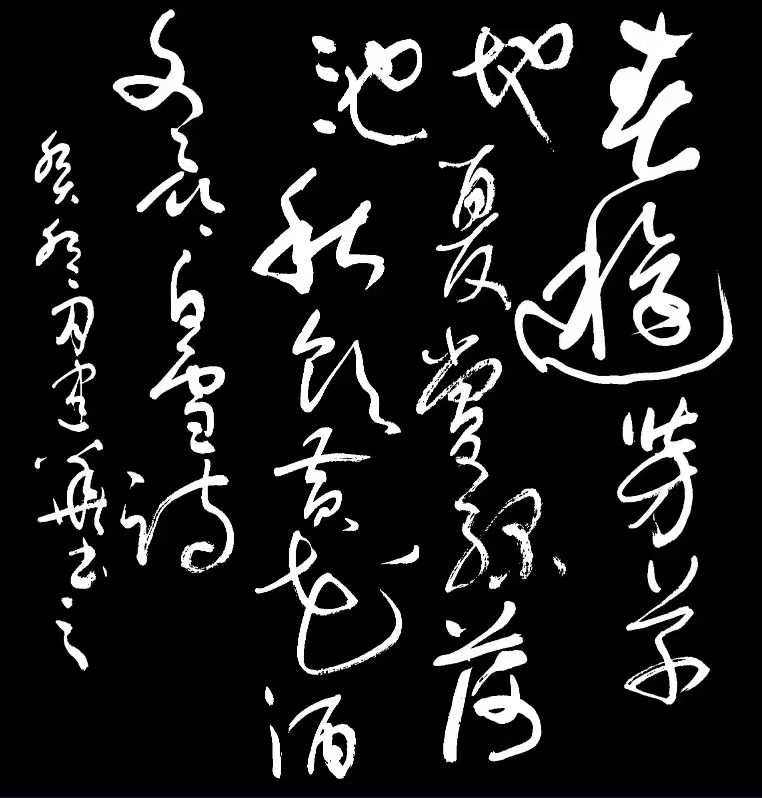 春遊芳草
地夏賞綠荷
池秋飲黃花酒
冬吟白雪詩
癸卯月建華書之